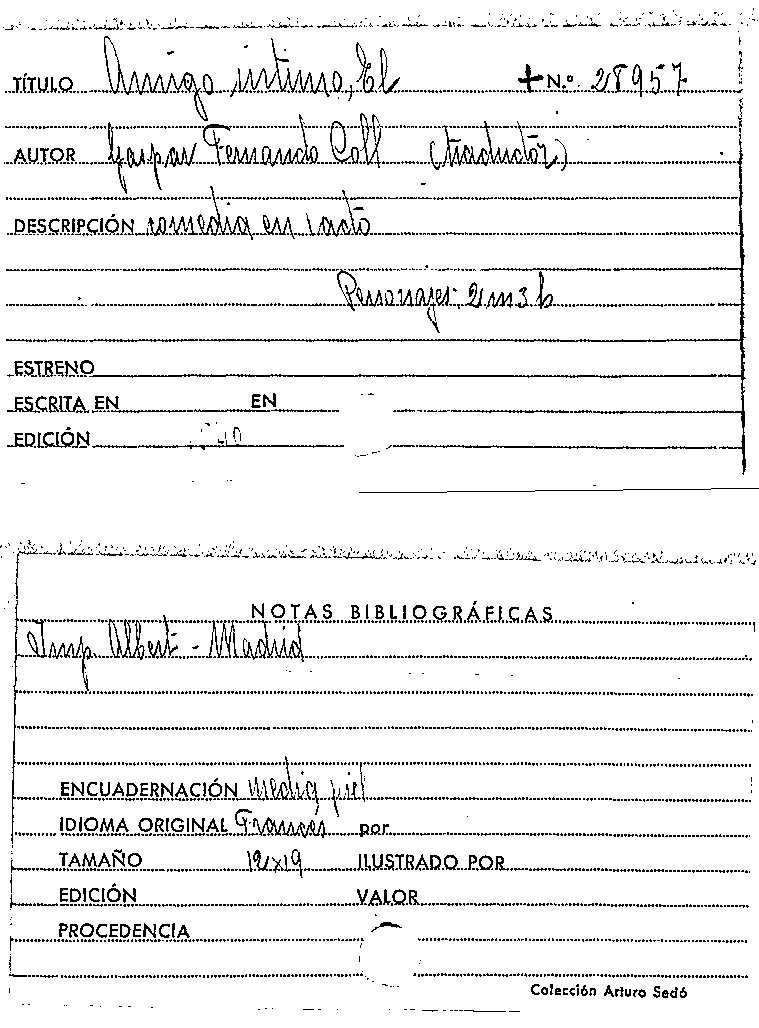 TÍTULO Amigo íntimo, El + N.º 28957
AUTOR Gaspar Fernando Coll (traductor)
DESCRIPCIÓN comedia en 1 acto
Personajes: 2 m 3 h
ESTRENO
ESCRITA EN EN
EDICIÓN
NOTAS BIBLIOGRÁFICAS
Imp Albert - Madrid
ENCUADERNACIÓN media piel
IDIOMA ORIGINAL Francés por
TAMAÑO 12x19 ILUSTRADO POR
EDICIÓN VALOR
PROCEDENCIA
Colección Arturo Sedó